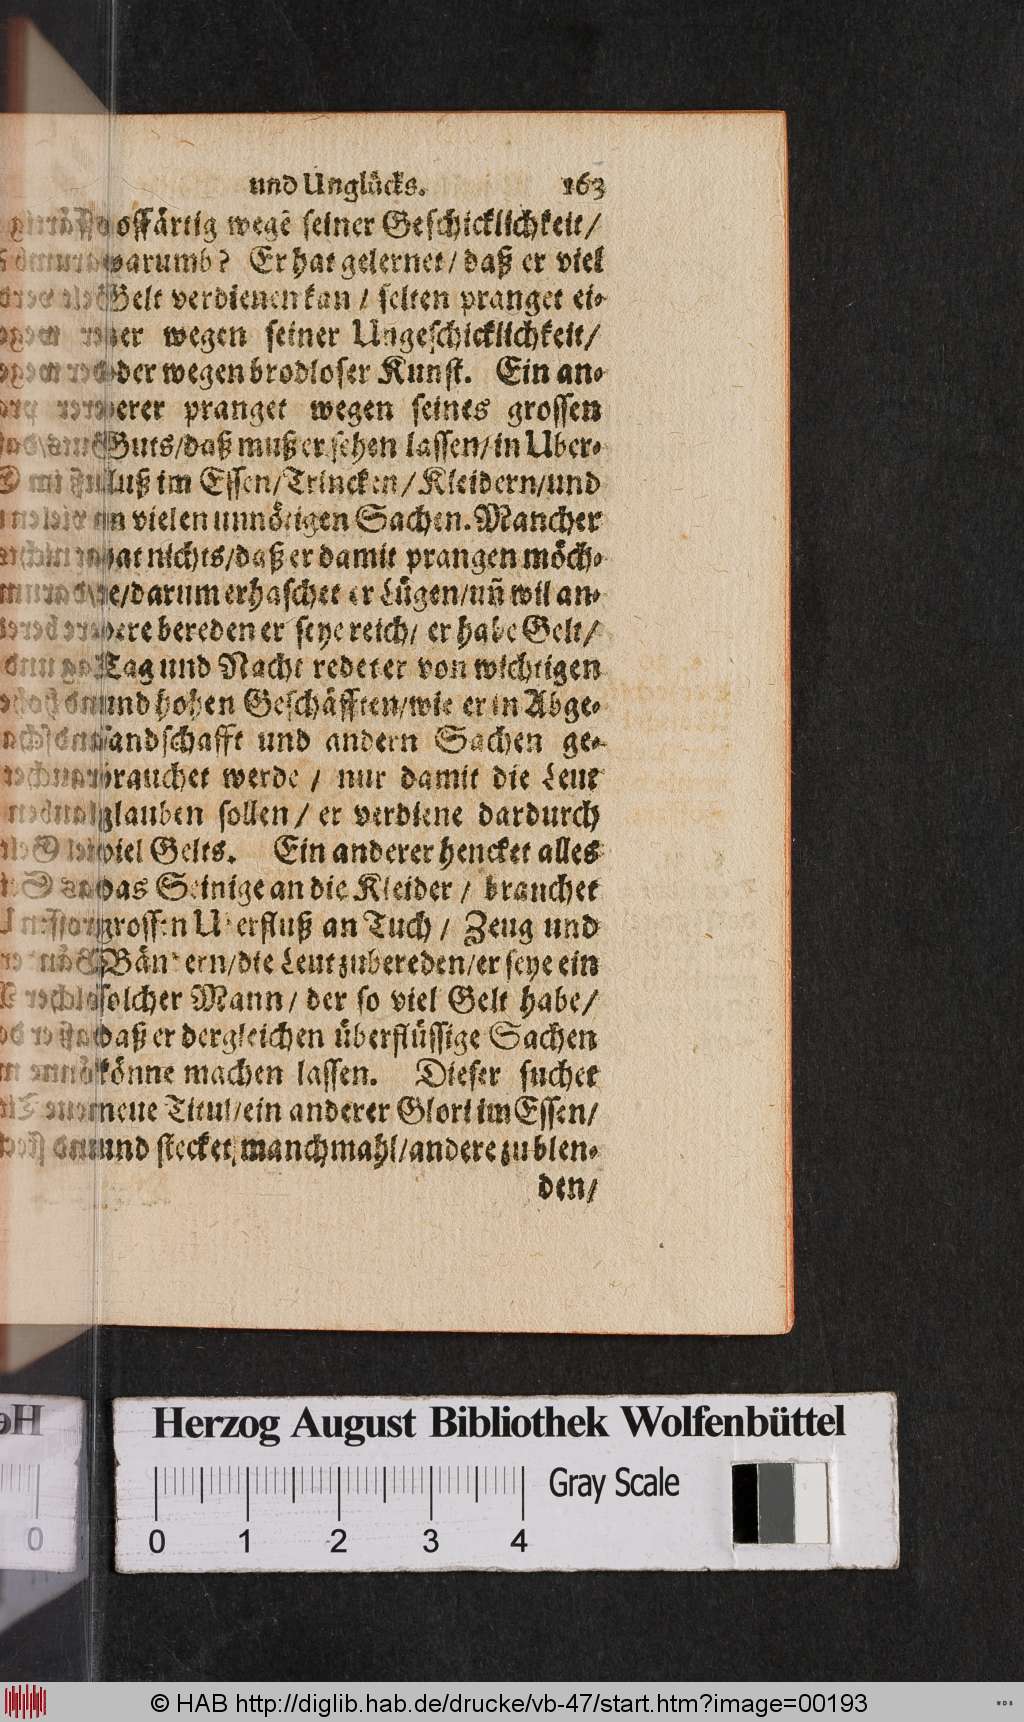 und Unglücks. 163
hoffärtig wegẽ seiner Geschicklichkeit/
warumb? Er hat gelernet/ daß er viel
Gelt verdienen kan/ selten pranget ei-
ner wegen seiner Ungeschicklichkeit/
oder wegen brodloser Kunst. Ein an-
derer pranget wegen seines grossen
Guts/daß muß er sehen lassen/in Uber-
fluß im Essen/Trincken/Kleidern/und
in vielen unnötigen Sachen. Mancher
hat nichts/daß er damit prangen möch-
te/darum erhaschet er Lügen/uñ wil an-
dere bereden er seye reich/ er habe Gelt/
Tag und Nacht redet er von wichtigen
und hohen Geschäfften/wie er in Abge-
sandschafft und andern Sachen ge-
brauchet werde / nur damit die Leut
glauben sollen/ er verdiene dardurch
viel Gelts. Ein anderer hencket alles
das Seinige an die Kleider/ brauchet
grossen Uberfluß an Tuch/ Zeug und
Bändern/die Leut zubereden/er seye ein
solcher Mann/ der so viel Gelt habe/
daß er dergleichen überflüssige Sachen
könne machen lassen. Dieser suchet
neue Titul/ein anderer Glori im Essen/
und stecket manchmahl/andere zu blen-
den/
Herzog August Bibliothek Wolfenbüttel
Gray Scale
0 1 2 3 4
© HAB http://diglib.hab.de/drucke/vb-47/start.htm?image=00193